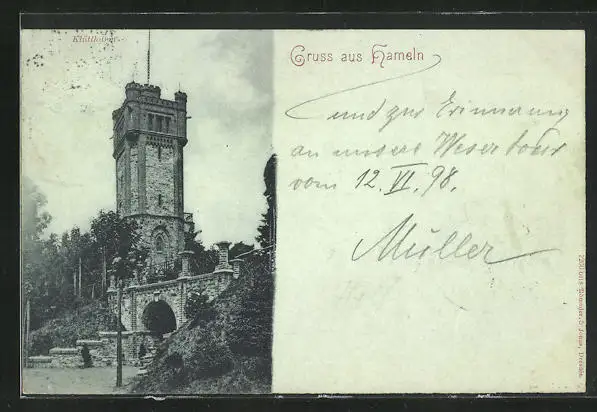 Klüttthurm
Gruss aus Hameln
und zur Erinnerung
an unsere Wesertour
vom 12. VI. 98.
Müller
Stengel & Co., Dresden